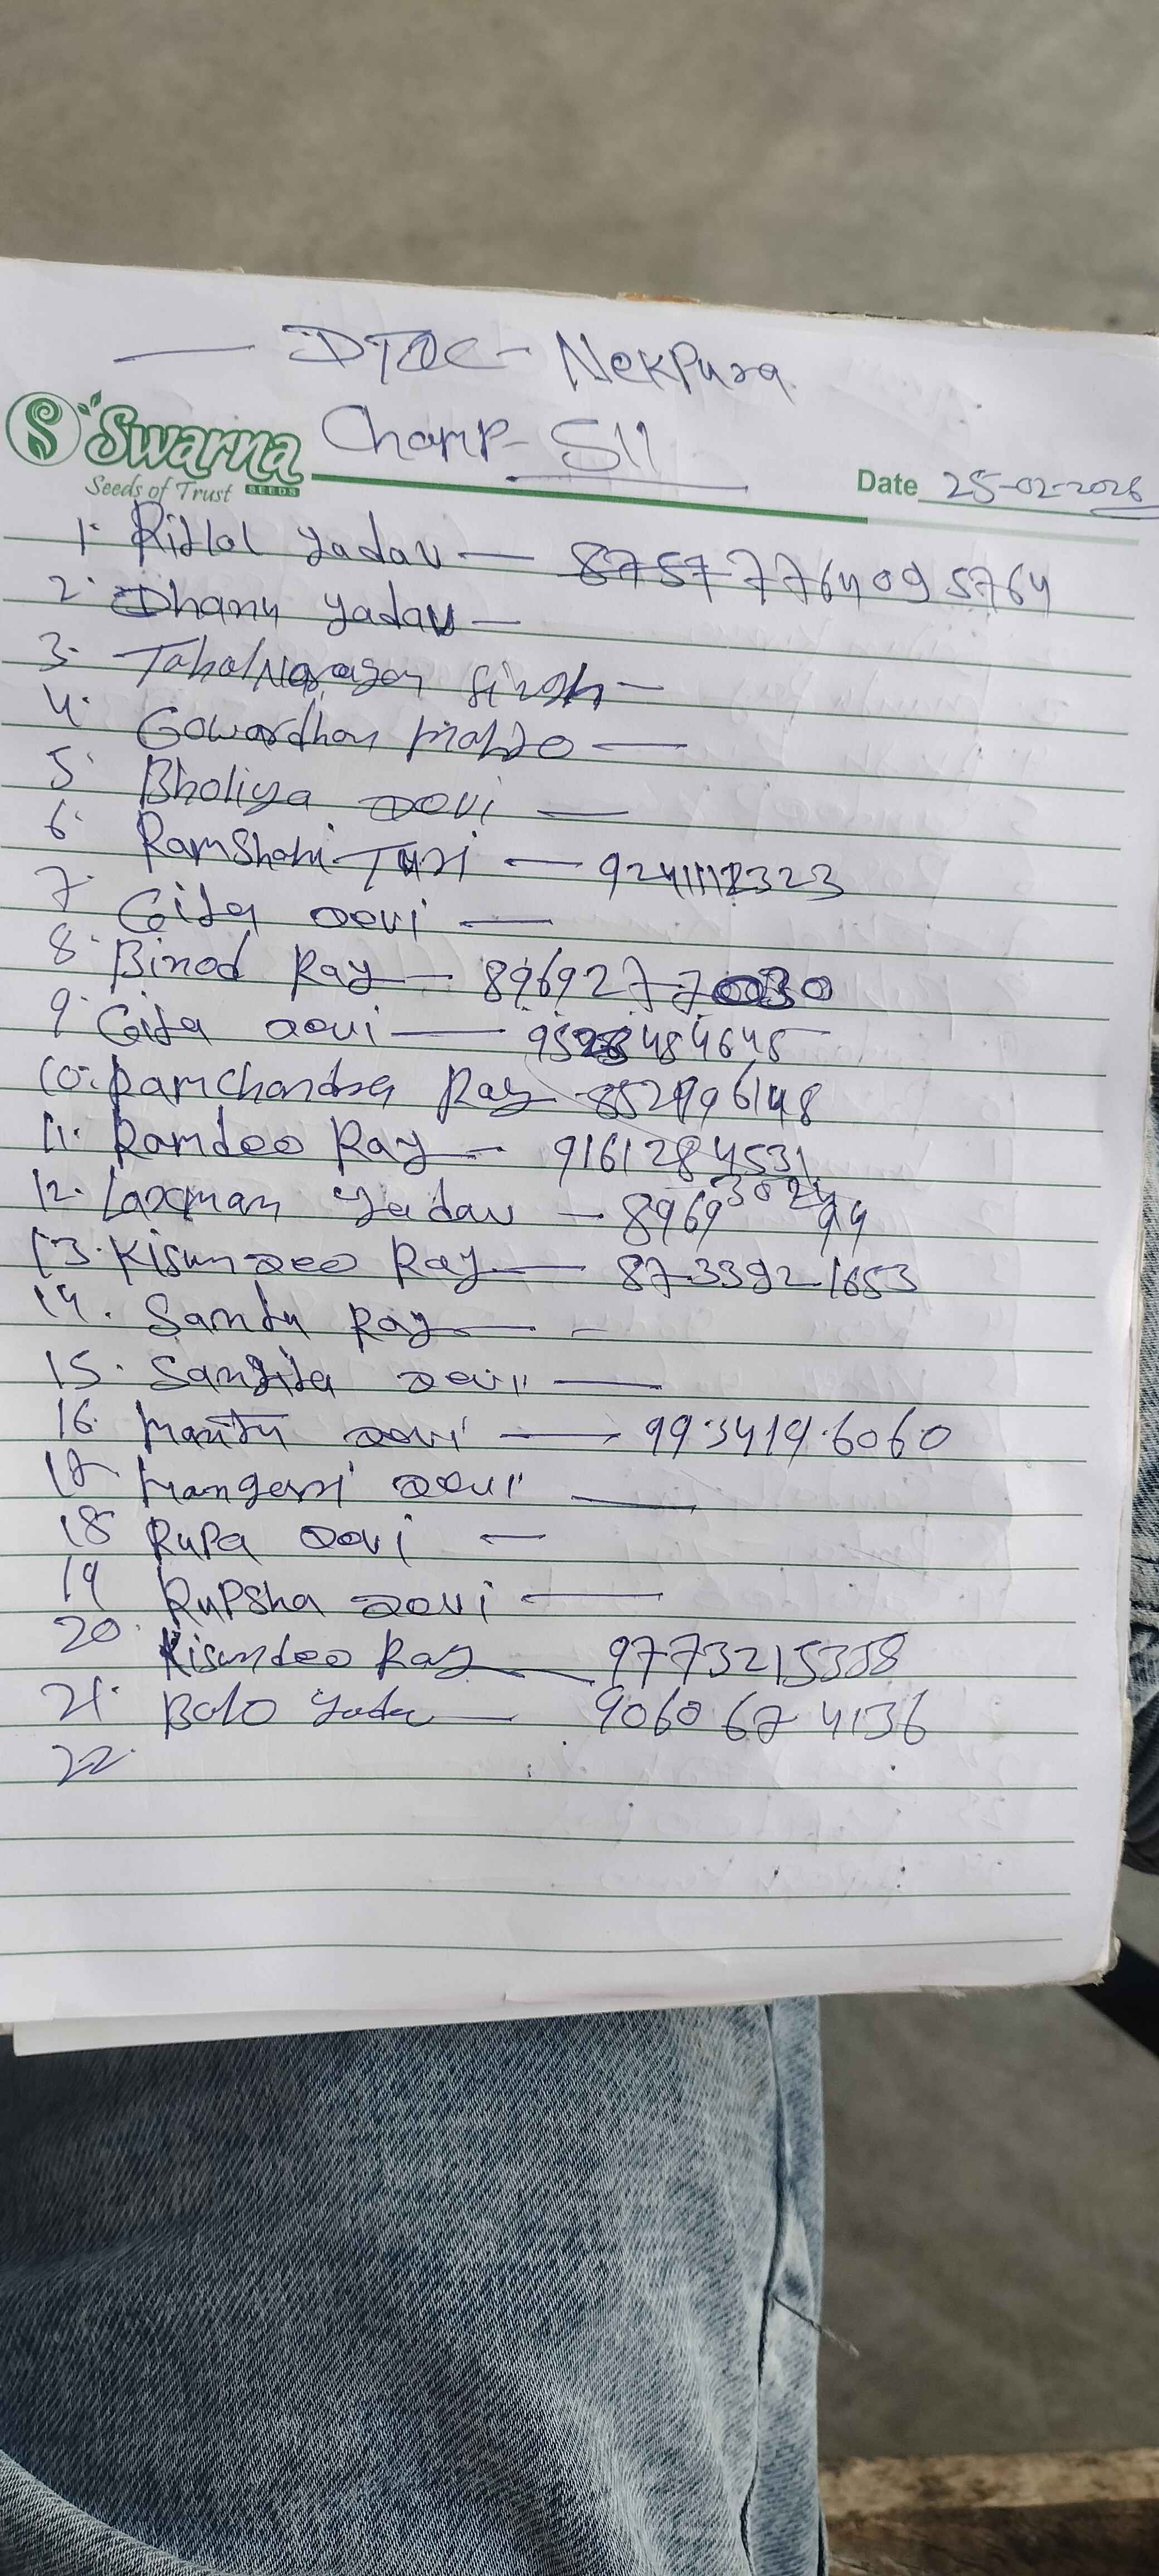 DTOC - Nekpura
Swarna
Seeds of Trust SEEDS
Champ - S11
Date 25-02-2026
1. Ritlal Yadav — 8757 7764095764
2. Dhanu Yadav —
3. Tahal Narayan Singh —
4. Gowardhan Mahto —
5. Bholiya Devi —
6. Ramshahi Turi — 9241112323
7. Gita Devi —
8. Binod Ray — 8969277030
9. Gita Devi — 9528484648
10. Ramchandra Ray - 852996148
11. Ramdeo Ray — 9161284531
12. Laxman Yadav — 8969302499
13. Kisundeo Ray — 8733921653
14. Santu Ray — -
15. Sangita Devi —
16. Mantu Devi — 9934196060
17. Mangeri Devi —
18 Rupa Devi —
19 Rupsha Devi —
20. Kisundeo Ray — 9773215358
21. Balo Yadav — 9060674136
22.